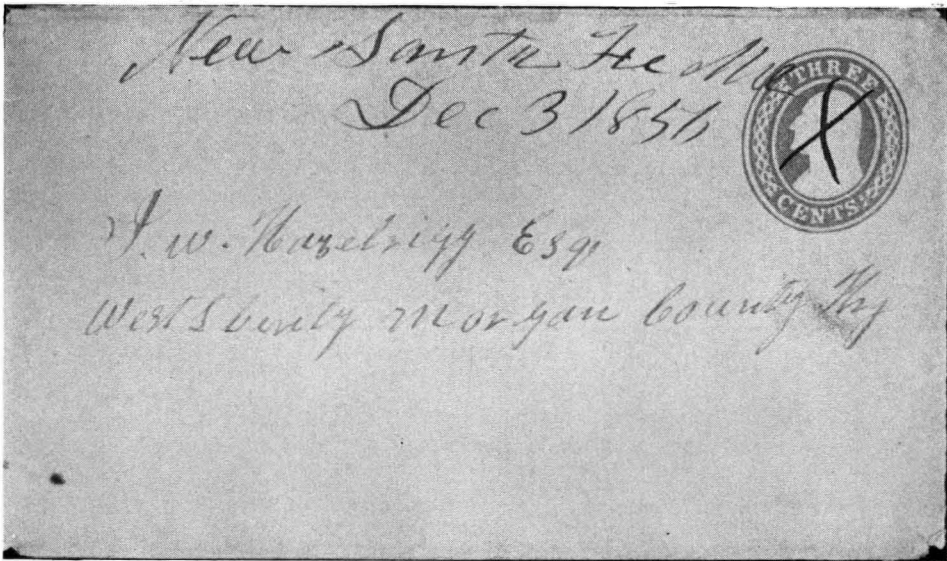 New Santa Fe Mo
Dec 3 1856
THREE
CENTS
J. W. Hazelrigg Esq
West Liberty Morgan County Ky